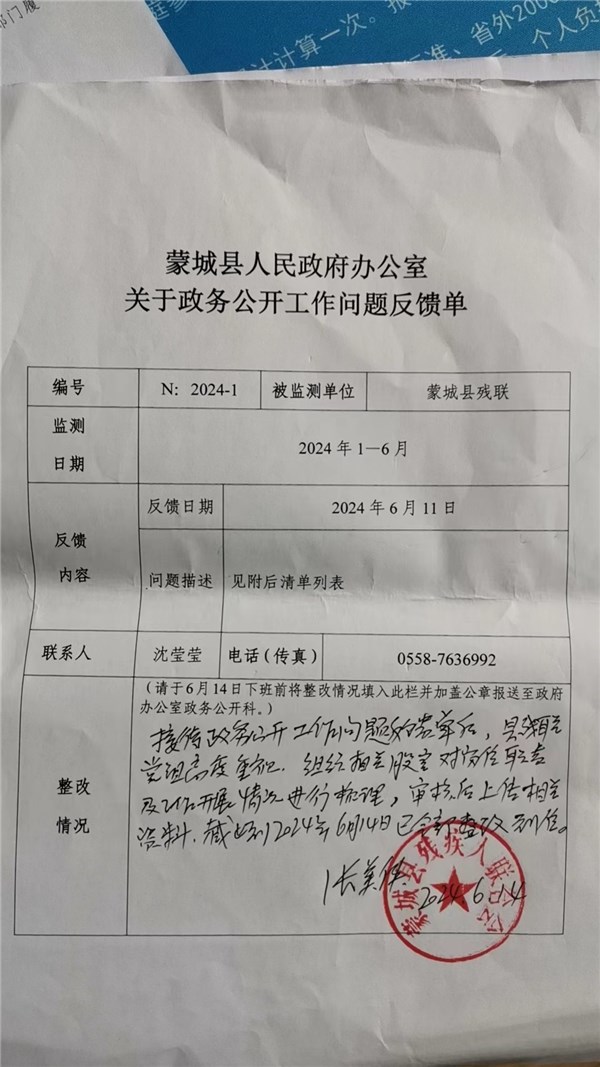 部门履
计计算一次。报
准、省外2000
个人负担
蒙城县人民政府办公室
关于政务公开工作问题反馈单
编号 N: 2024-1 被监测单位 蒙城县残联
监测日期 2024 年 1—6 月
反馈内容
反馈日期 2024 年 6 月 11 日
问题描述 见附后清单列表
联系人 沈莹莹 电话（传真） 0558-7636992
整改情况
（请于 6 月 14 日下班前将整改情况填入此栏并加盖公章报送至政府
办公室政务公开科。）
接得政务公开工作问题反馈单后，县残联
党组高度重视．组织相关股室对岗位职责
及工作开展情况进行梳理，审核后上传相关
资料．截止到2024年6月14日已全部整改到位。
2024.6.14
蒙城县残疾人联合会